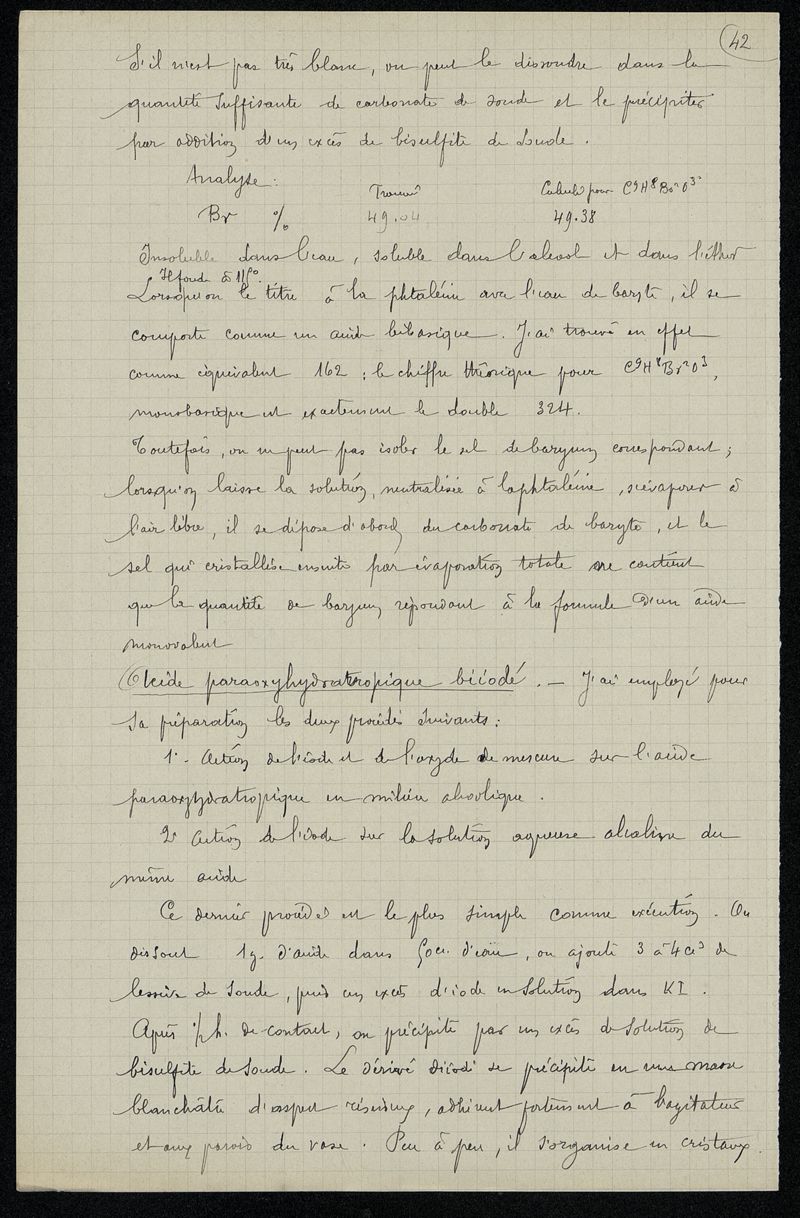 42
S'il n'est pas très blanc, on peut le dissoudre dans la
quantité suffisante de carbonate de soude et le précipiter
par addition d'un excès de bisulfite de soude.
Analyse :
Trouvé Calculé pour C⁹H⁸Br²O³
Br % 49.04 49.38
Insoluble dans l'eau, soluble dans l'alcool et dans l'éther
Il fond à 115°.
Lorsqu'on le titre à la phtaléine avec l'eau de baryte, il se
comporte comme un acide bibasique. J'ai trouvé en effet
comme équivalent 162 ; le chiffre théorique pour C⁹H⁸Br²O³,
monobasique est exactement le double 324.
Toutefois, on ne peut pas isoler le sel de baryum correspondant ;
lorsqu'on laisse la solution, neutralisée à la phtaléine, s'évaporer à
l'air libre, il se dépose d'abord du carbonate de baryte, et le
sel qui cristallise ensuite par évaporation totale ne contient
que la quantité de baryum répondant à la formule d'un acide
monovalent
Acide paraoxyhydratropique biiodé. — J'ai employé pour
sa préparation les deux procédés suivants :
1°- Action de l'iode et de l'oxyde de mercure sur l'acide
paraoxyhydratropique en milieu alcoolique.
2° Action de l'iode sur la solution aqueuse alcaline du
même acide
Ce dernier procédé est le plus simple comme exécution. On
dissout 1g. d'acide dans 50cc. d'eau, on ajoute 3 à 4cc de
lessive de soude, puis un excès d'iode en solution dans KI.
Après ½h. de contact, on précipite par un excès de solution de
bisulfite de soude. Le dérivé diiodé se précipite en une masse
blanchâtre d'aspect résineux, adhérent fortement à l'agitateur
et aux parois du vase. Peu à peu, il s'organise en cristaux.